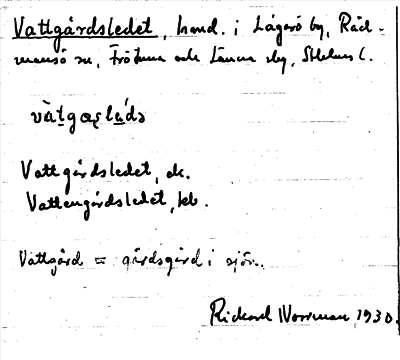 Vattgårdsledet, hmd. i Lågarö by, Råd-
mansö sn, Frötuna och Länna sky, Sthlms l.
Vattgårdsledet, ek.
Vattengårdsledet, kb.
Vattgård = gärdsgård i sjön.
Rickard Worrman, 1930.